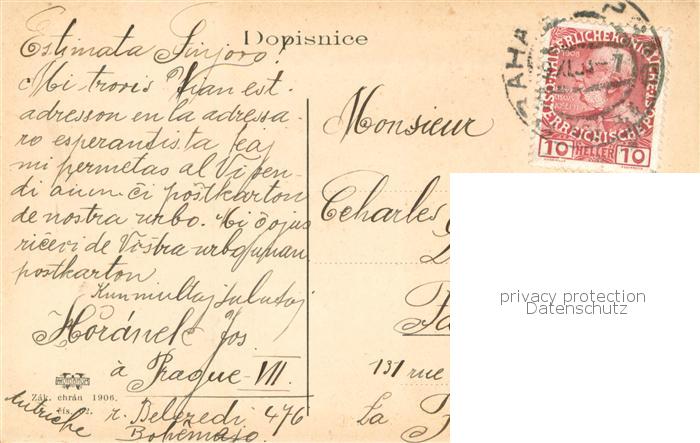 Dopisnice
Estimata Sinjoro!
Mi trovis Vian est.
adresson en la adressa-
ro esperantista kaj
mi permetas al Vi pen-
di aium ĉi poŝtkarton
de nostra urbo. Mi ĝojus
riĉevi de Vostra urbo unan
poŝtkarton
Kun multaj salutoj
Horánek Jos.
à Prague VII.
r. Belcredi 476
Bohêmujo.
Autriche
Zák. chrán 1906.
čís. 2.
Monsieur
Ccharles
131 rue
La
KAISERLICHE KÖNIGLICHE
ÖSTERREICHISCHE POST
1908
10 HELLER 10
PRAHA
privacy protection
Datenschutz